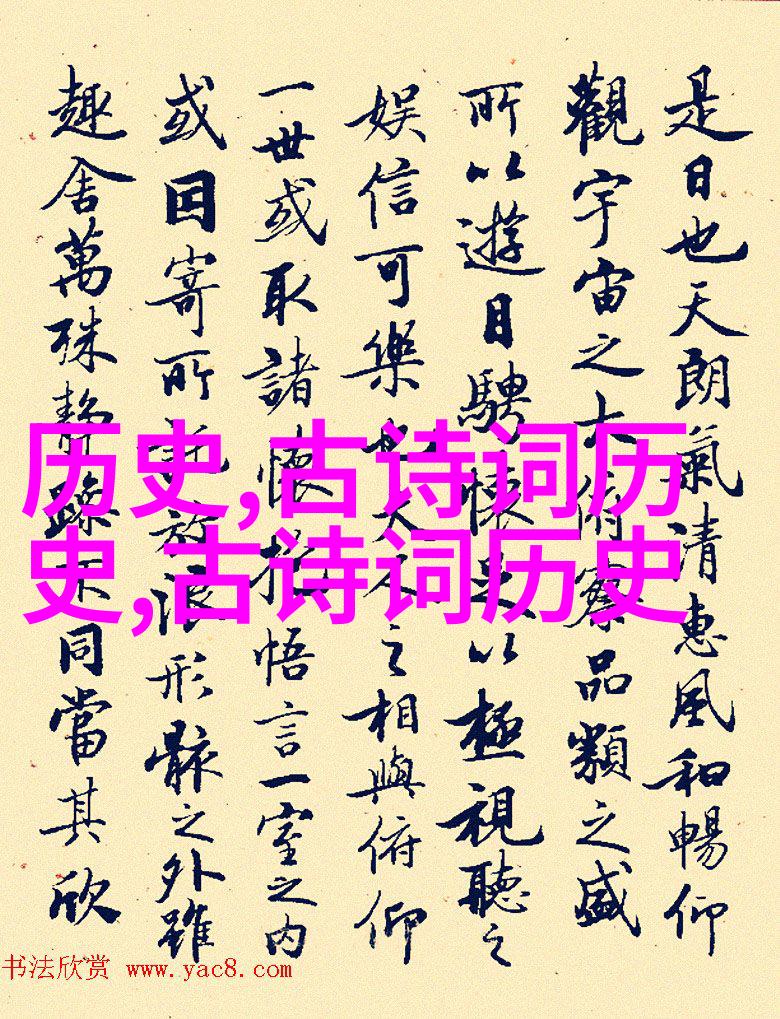 是日也天朗氣清惠風和暢仰
觀宇宙之大俯察品類之盛
所以遊目騁懷足以極視聽之
娛信可樂也夫人之相與俯仰
一世或取諸懷抱悟言一室之内
或因寄所託放浪形骸之外雖
趣舍萬殊静躁不同當其欣
历史,古诗词历
史,古诗词历史
书法欣赏 www.yac8.com